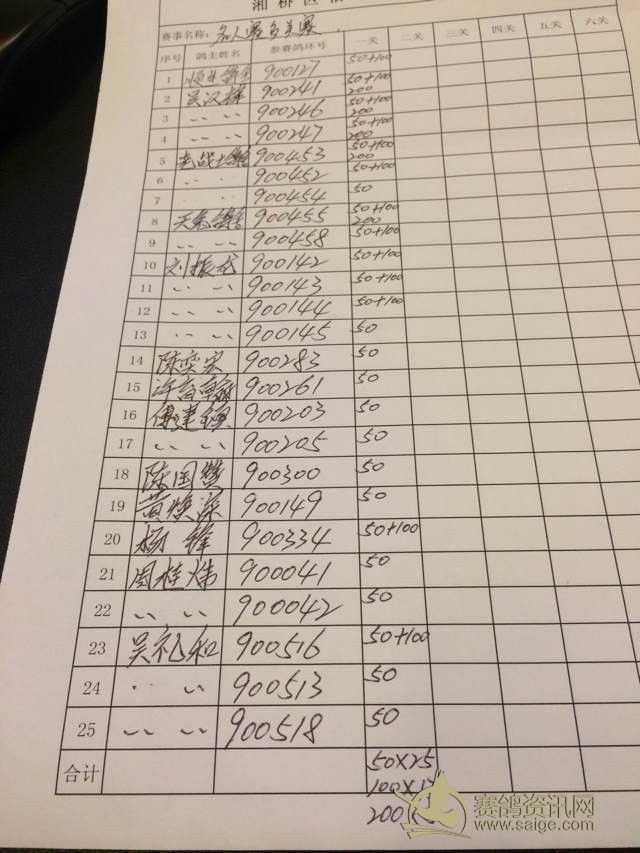 湘桥区信
赛事名称: 名人赛多关赛
序号 鸽主姓名 参赛鸽环号 一关 二关 三关 四关 五关 六关
1 900127 50+100
2 吴汉 900241 50+100 200
3 〃 〃 900246 50+100 200
4 〃 〃 900247 50+100 200
5 900453 50+100 200
6 〃 〃 900452 50+100
7 〃 〃 900454 50
8 900455 50+100 200
9 〃 〃 900458 50+100
10 刘振龙 900142 50+100
11 〃 〃 900143 50+100
12 〃 〃 900144 50+100
13 〃 〃 900145 50
14 陈奕宏 900283 50
15 许 900261 50
16 傅建 900203 50
17 〃 〃 900205 50
18 陈国赞 900300 50
19 黄焕深 900149 50
20 杨锋 900334 50+100
21 周桂炜 900041 50
22 〃 〃 900042 50
23 吴礼和 900516 50+100
24 〃 〃 900513 50
25 〃 〃 900518 50
合计 50×25
100×1
200
赛鸽资讯网
www.saige.com